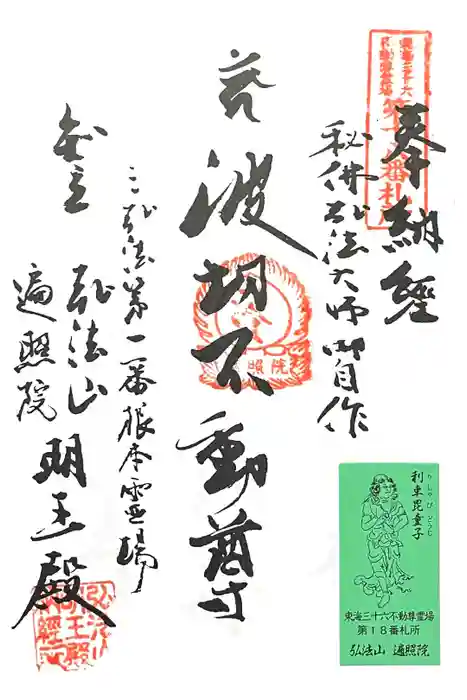 奉納經
秘佛弘法大師御自作
波切不動尊
三弘法第一番根本霊場
弘法山
遍照院
明王殿
東海三十六
不動尊霊場
第十八番札所
照院
利車毘童子
りしゃび どうじ
東海三十六不動尊霊場
第18番札所
弘法山 遍照院